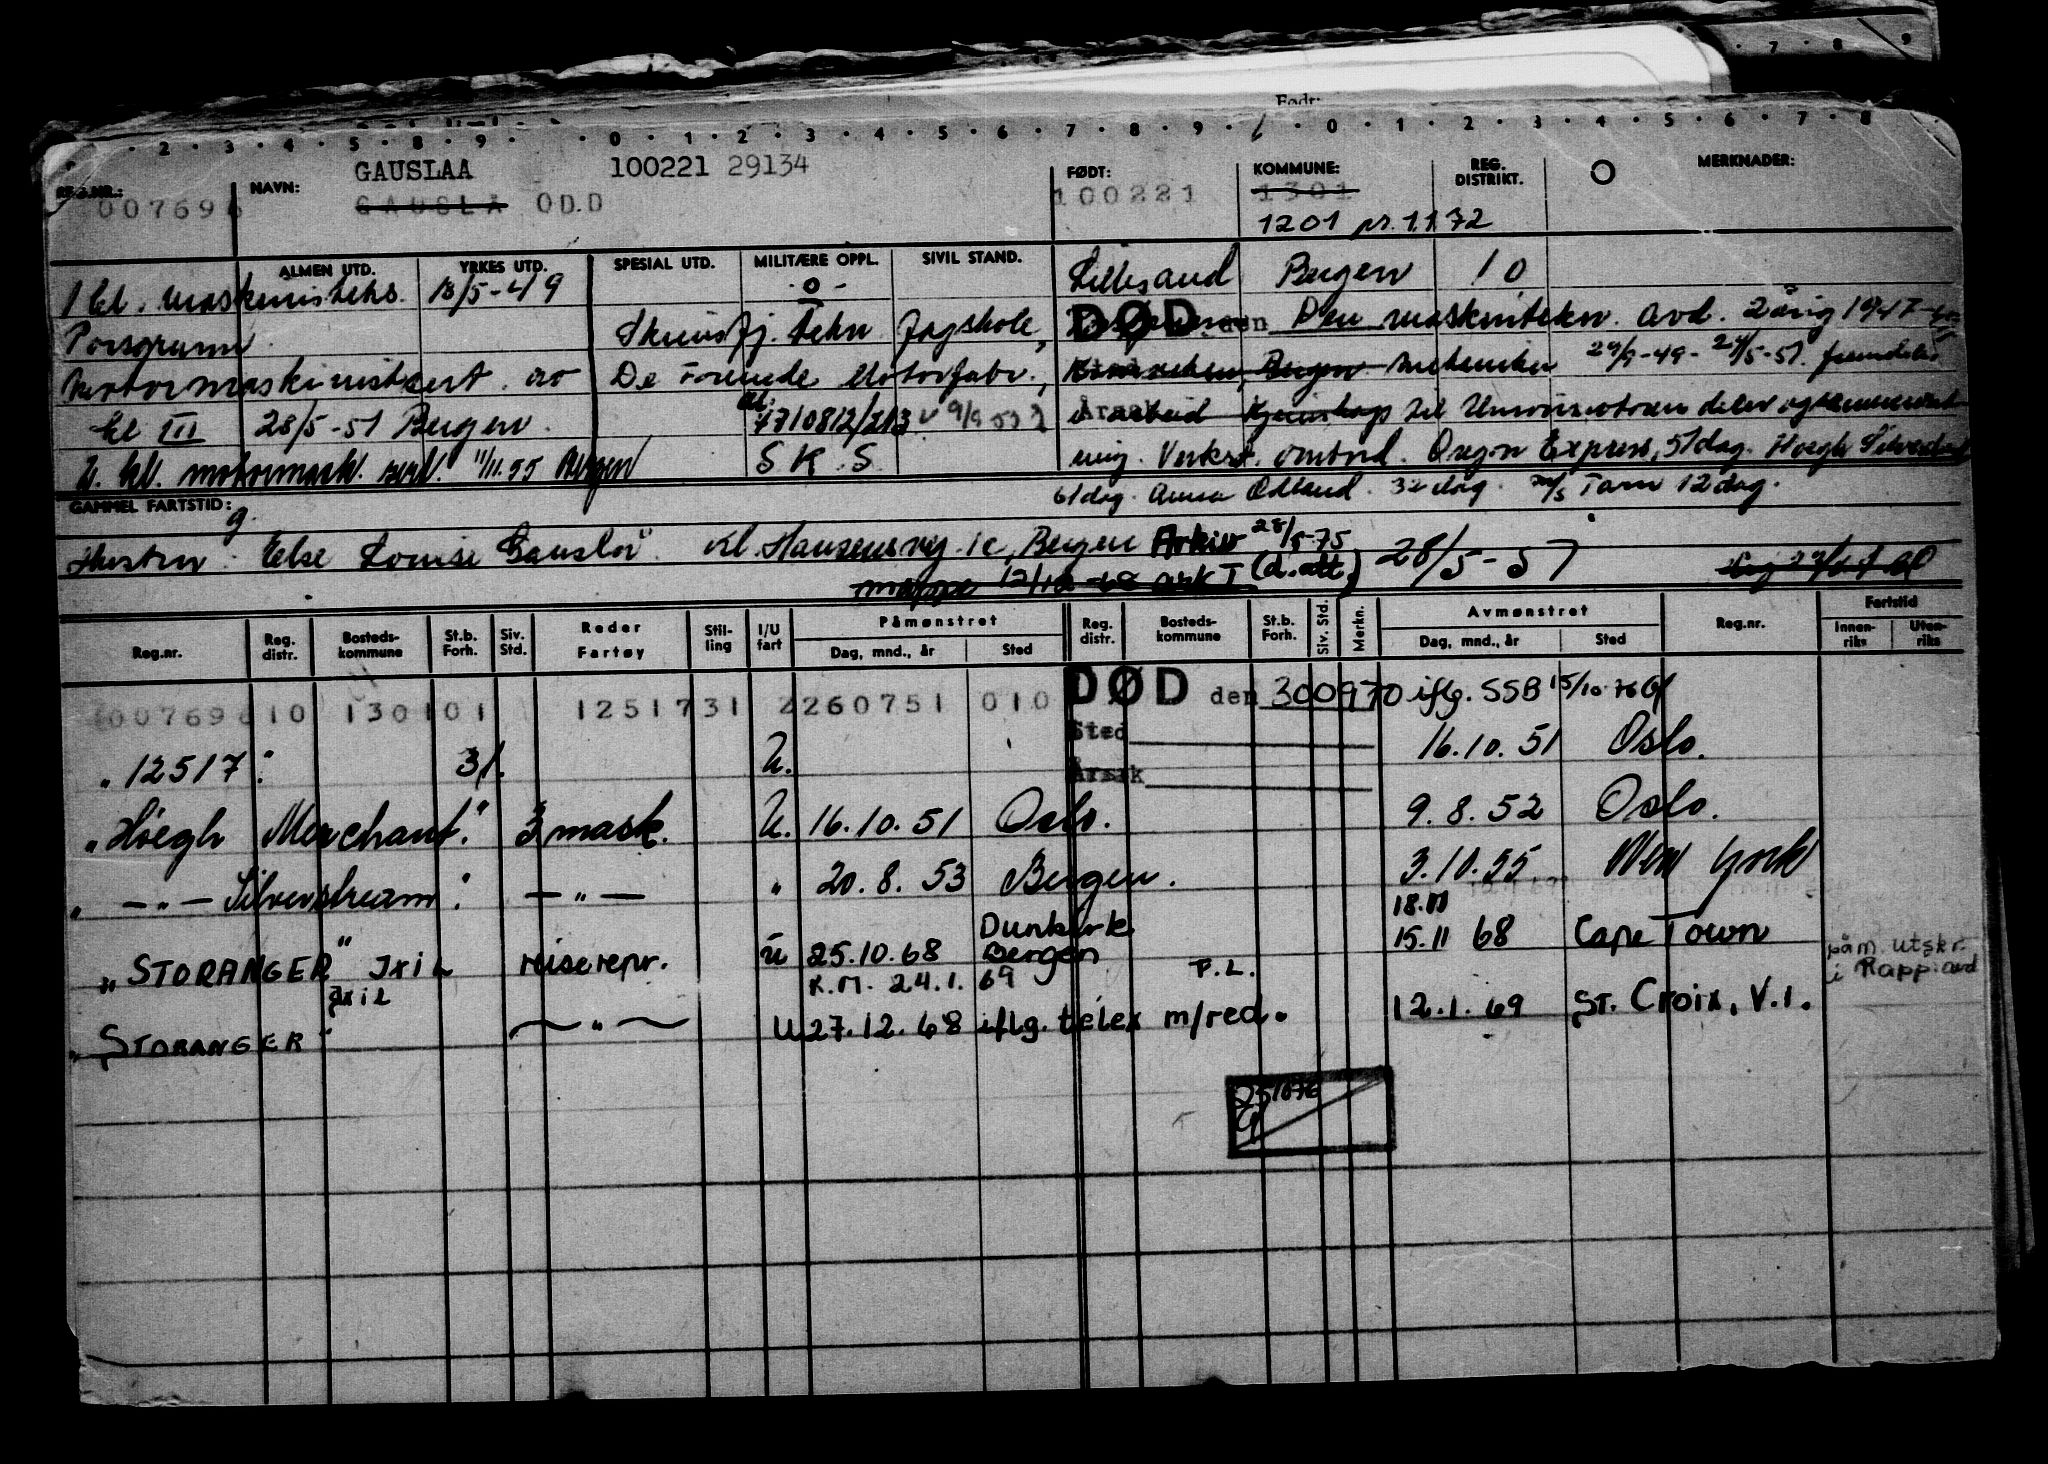 Født:
2 · 3 · 4 · 5 · 8 · 9 · 0 · 1 · 2 · 3 · 4 · 5 · 6 · 7 · 8 · 9 · 0 · 1 · 2 · 3 · 4 · 5 · 6 · 7 · 8
GAUSLAA 100221 29134
REG.NR.: NAVN: FØDT: KOMMUNE: REG. DISTRIKT. O MERKNADER:
007696 GAUSLA ODD 100221 1301
1201 pr. 1.1.72
ALMEN UTD. YRKES UTD. SPESIAL UTD. MILITÆRE OPPL. SIVIL STAND. Lillesand Bergen 10
1 kl. maskinisteks. 18/5-49 -0-
Porsgrunn. Skiensfj. tekn. fagskole, DØD den Den maskintekn. avd. 2 årig 1947-
motormaskinistsert. av De Forenede Motorfabr., Bergen mekaniker 29/9-49 - 24/5-51.
kl III 28/5-51 Bergen. 7710812/213 Årsak
2. kl. motormask. sert. 11/11.55 Bergen S K S ing. Verkst. ombord. Oregon Express, 51 dag. Høegh
GAMMEL FARTSTID: 61 dag. Anna Odland. 32 dag. Tarn 12 dag.
Hustru: Else Louise Gauslå Kl. Hansensvg. 1c, Bergen Arkiv 28/5-75 28/5-57
mappe 12/12-68 ark I (d.att)
Reg.nr. Reg. distr. Bosteds- kommune St.b. Forh. Siv. Std. Reder Fartøy Stil- ling I/U fart Påmønstret Dag, mnd., år Sted Reg. distr. Bosteds- kommune St.b. Forh. Siv. Std. Merkn. Avmønstret Dag, mnd., år Sted Reg.nr. Fartstid Innen- riks Uten- riks
007696 10 1301 01 12517 31 2 260751 010 DØD den 300970 iflg. SSB 15/10-76
"12517" 31. U. Sted 16.10.51 Oslo.
Årsak
"Høegh Merchant." 3 mask. U. 16.10.51 Oslo. 9.8.52 Oslo.
" — " — Silverstream". — " — " 20.8.53 Bergen. 3.10.55 New York
18.11
"STORANGER" Jxil reiserepr. U 25.10.68 Dunkirk Bergen 15.11 68 Cape Town påm. utskr. i Rapp.
K.M. 24.1.69 F.L.
"STORANGER" Jxil — " — U 27.12.68 iflg. telex m/red. 12.1.69 ST. Croix, V.I.
251076